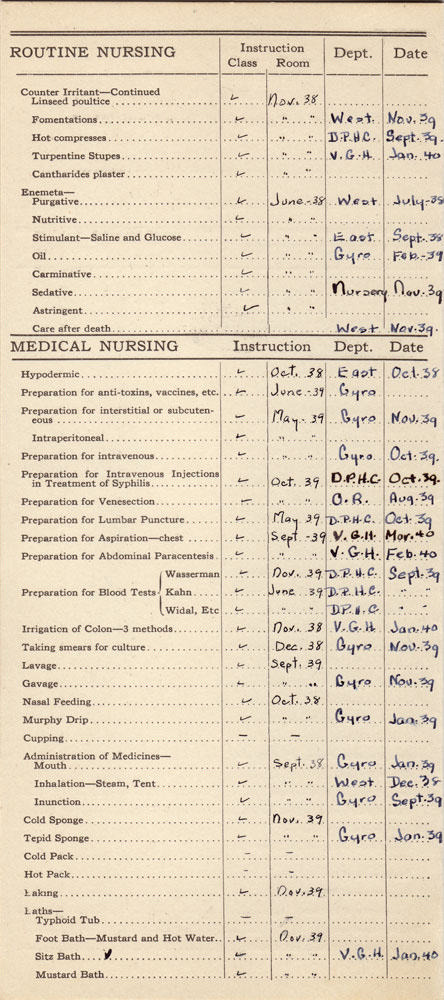 ROUTINE NURSING Instruction Dept. Date
Class Room
Counter Irritant—Continued
Linseed poultice ✓ Nov. 38
Fomentations ✓ " " West. Nov. 39
Hot compresses ✓ " " D.P.H.C. Sept. 39
Turpentine Stupes ✓ " " V.G.H. Jan. 40
Cantharides plaster ✓ " "
Enemeta—
Purgative ✓ June-38 West July-38
Nutritive ✓ " "
Stimulant—Saline and Glucose ✓ " " East Sept. 38
Oil ✓ " " Gyro Feb.-39
Carminative ✓ " "
Sedative ✓ " " Nursery Nov. 39
Astringent ✓ " "
Care after death West Nov. 39.
MEDICAL NURSING Instruction Dept. Date
Hypodermic ✓ Oct. 38 East Oct. 38
Preparation for anti-toxins, vaccines, etc. ✓ June-39 Gyro
Preparation for interstitial or subcuten-
eous ✓ May-39 Gyro Nov. 39
Intraperitoneal ✓ " "
Preparation for intravenous ✓ Gyro Oct. 39.
Preparation for Intravenous Injections
in Treatment of Syphilis ✓ Oct. 39 D.P.H.C. Oct. 39.
Preparation for Venesection ✓ " " O.R. Aug. 39
Preparation for Lumbar Puncture ✓ May 39 D.P.H.C. Oct. 39
Preparation for Aspiration—chest ✓ Sept-39 V.G.H. Mar. 40
Preparation for Abdominal Paracentesis ✓ " " V.G.H. Feb. 40
Wasserman ✓ Nov. 39 D.P.H.C. Sept. 39
Preparation for Blood Tests Kahn ✓ June 39 D.P.H.C. " "
Widal, Etc ✓ " " D.P.H.C " "
Irrigation of Colon—3 methods ✓ Nov. 38 V.G.H. Jan. 40
Taking smears for culture ✓ Dec. 38 Gyro Nov. 39
Lavage ✓ Sept. 39
Gavage ✓ " " Gyro Nov. 39
Nasal Feeding ✓ Oct. 38
Murphy Drip ✓ " " Gyro Jan. 39
Cupping – –
Administration of Medicines—
Mouth ✓ Sept. 38 Gyro Jan. 39
Inhalation—Steam, Tent ✓ " " West Dec. 38
Inunction ✓ " " Gyro Sept. 39
Cold Sponge ✓ Nov. 39
Tepid Sponge ✓ " " Gyro Jan. 39
Cold Pack – –
Hot Pack – –
Laking ✓ Nov. 39
Laths—
Typhoid Tub – –
Foot Bath—Mustard and Hot Water ✓ Nov. 39
Sitz Bath ✓ ✓ " " V.G.H. Jan. 40
Mustard Bath ✓ " "